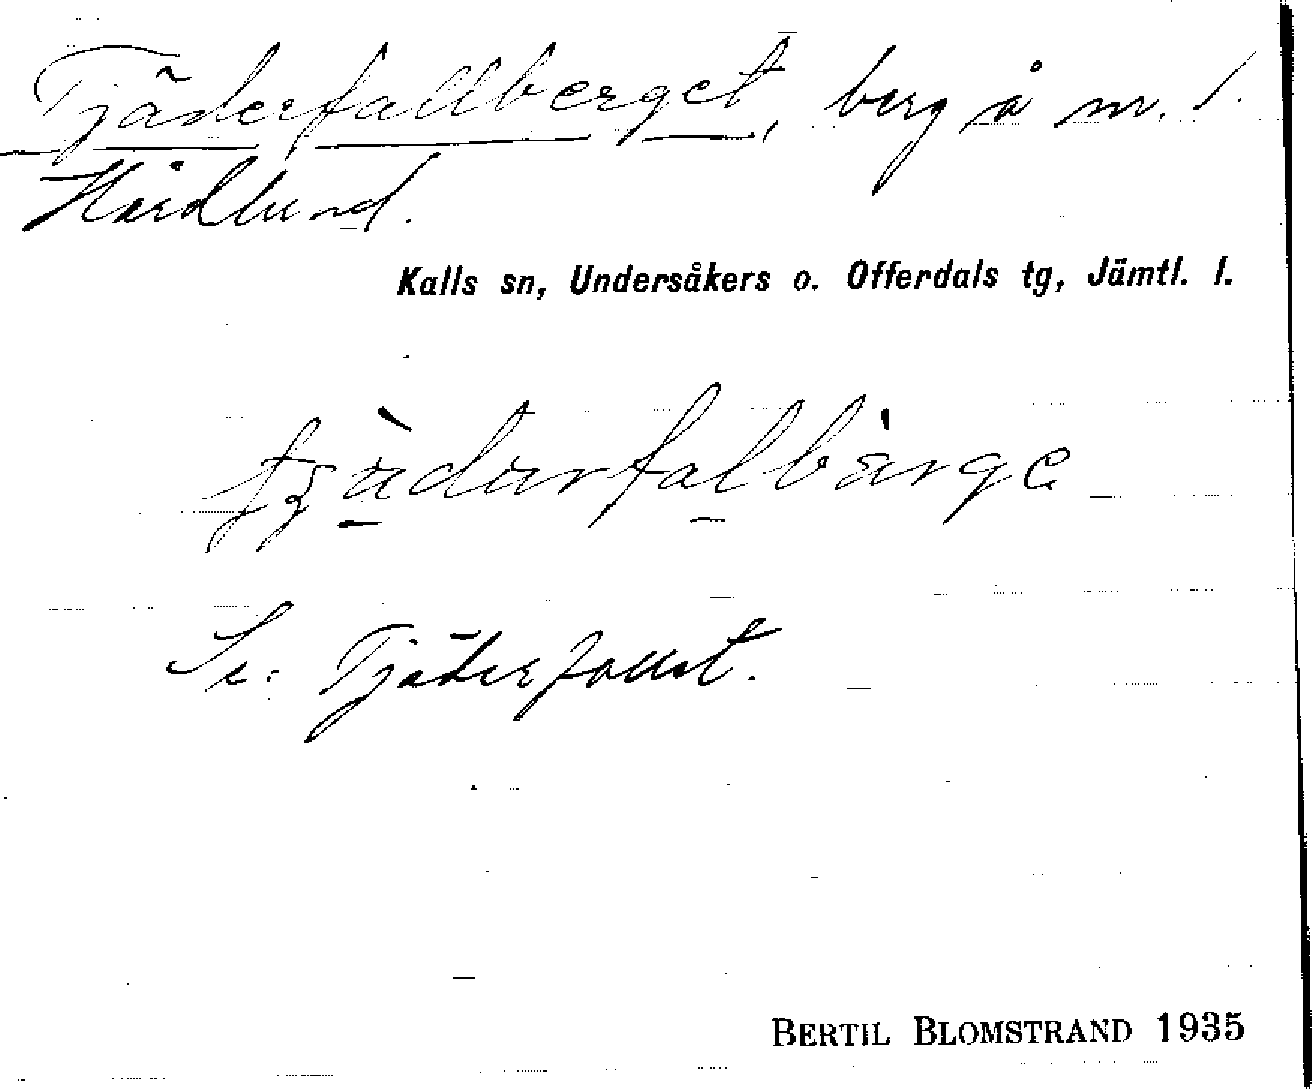 Tjäderfallberget, berg å nr. 1.
Hårdlund.
Kalls sn, Undersåkers o. Offerdals tg, Jämtl. l.
Se: Tjäderfallet.
BERTIL BLOMSTRAND 1935